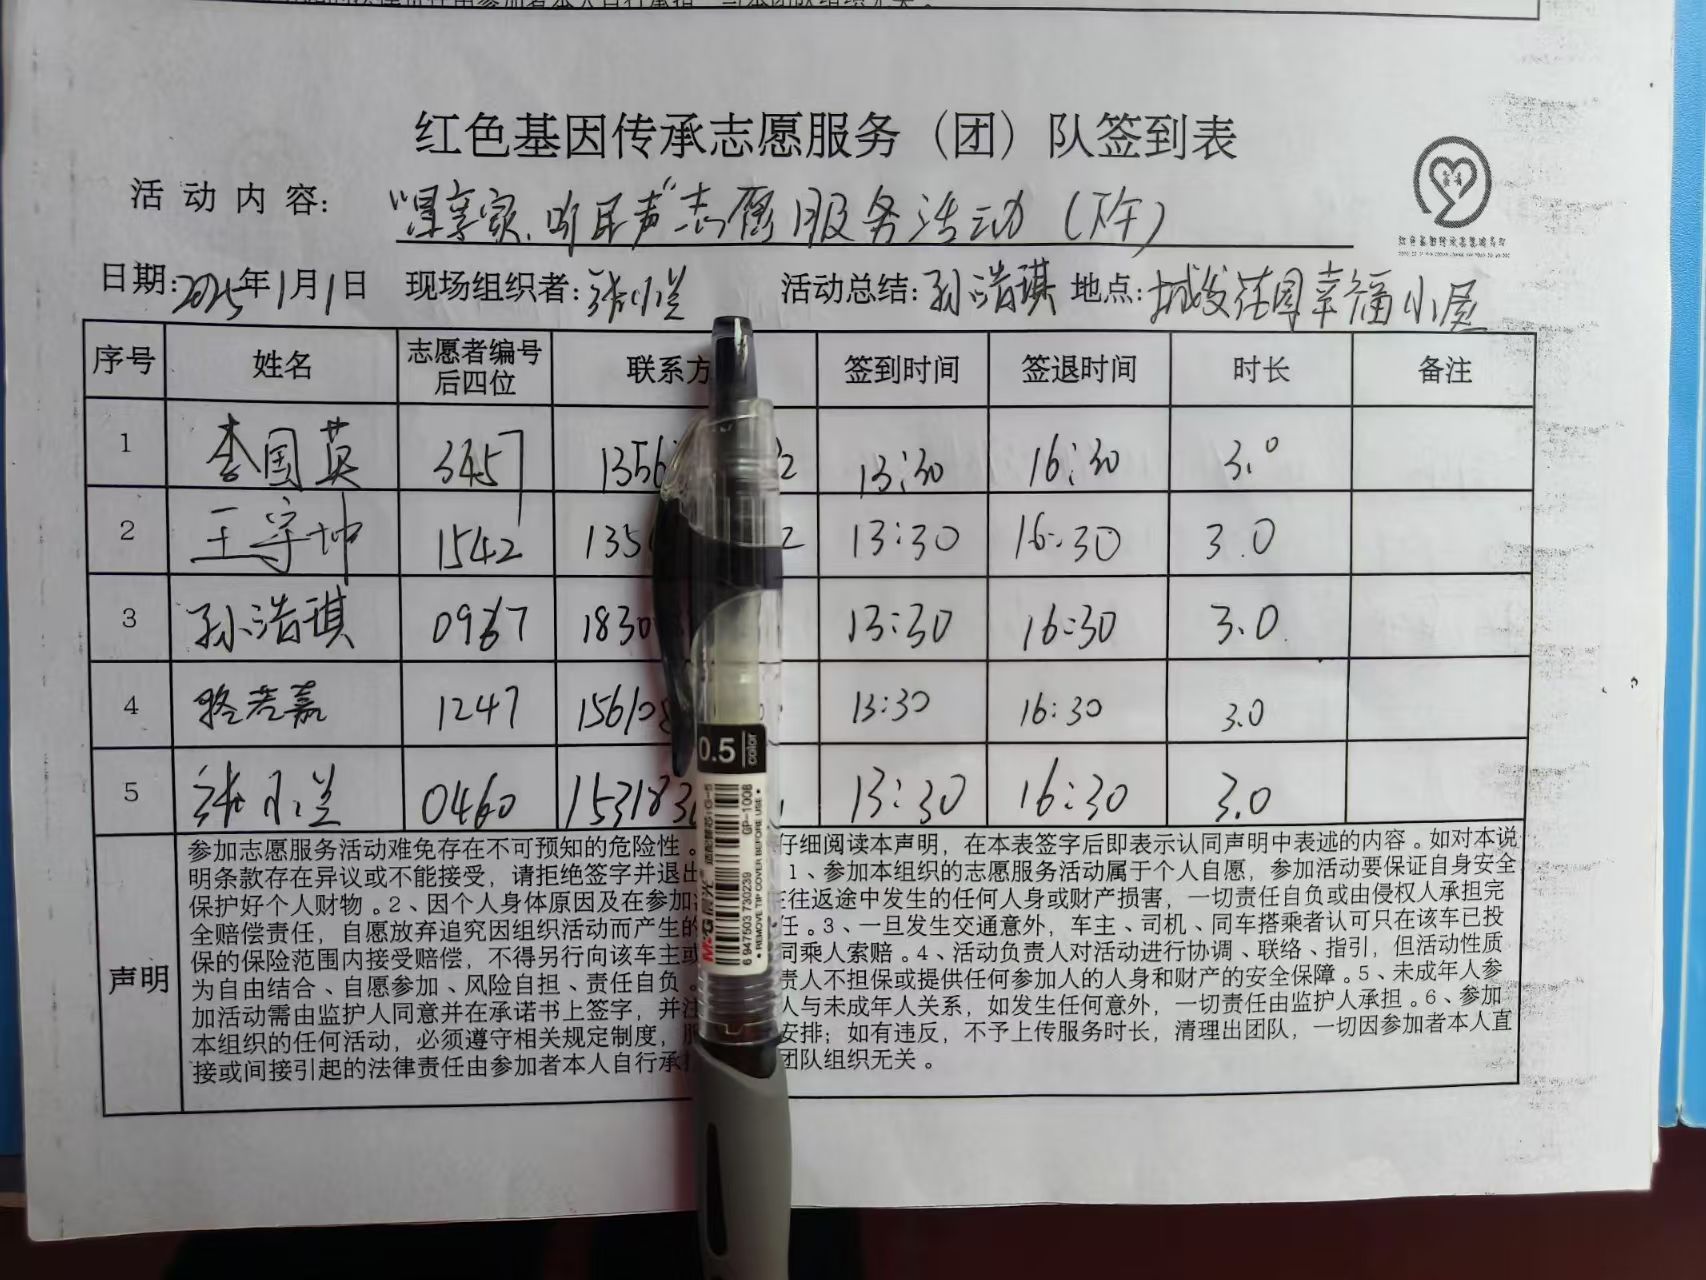 红色基因传承志愿服务（团）队签到表
活动内容: 听民声”志愿服务活动（下午）
日期: 2025年1月1日 现场组织者: 张小兰 活动总结: 孙浩琪 地点: 城发花园幸福小屋
序号 姓名 志愿者编号后四位 联系方 签到时间 签退时间 时长 备注
1 李国英 3457 1356 2 13:30 16:30 3.0
2 王守坤 1542 135 2 13:30 16:30 3.0
3 孙浩琪 0967 1830 13:30 16:30 3.0
4 骆若嘉 1247 156108 13:30 16:30 3.0
5 张小兰 0460 153183 13:30 16:30 3.0
声明
参加志愿服务活动难免存在不可预知的危险性。 仔细阅读本声明，在本表签字后即表示认同声明中表述的内容。如对本说
明条款存在异议或不能接受，请拒绝签字并退出 1、参加本组织的志愿服务活动属于个人自愿，参加活动要保证自身安全
保护好个人财物。2、因个人身体原因及在参加 往返途中发生的任何人身或财产损害，一切责任自负或由侵权人承担完
全赔偿责任，自愿放弃追究因组织活动而产生的 任。3、一旦发生交通意外，车主、司机、同车搭乘者认可只在该车已投
保的保险范围内接受赔偿，不得另行向该车主或 同乘人索赔。4、活动负责人对活动进行协调、联络、指引，但活动性质
为自由结合、自愿参加、风险自担、责任自负。 责人不担保或提供任何参加人的人身和财产的安全保障。5、未成年人参
加活动需由监护人同意并在承诺书上签字，并注 人与未成年人关系，如发生任何意外，一切责任由监护人承担。6、参加
本组织的任何活动，必须遵守相关规定制度，服 安排；如有违反，不予上传服务时长，清理出团队，一切因参加者本人直
接或间接引起的法律责任由参加者本人自行承担 团队组织无关。
0.5 color
M&G 晨光
GP-1008
6 947503 730239
• REMOVE TIP COVER BEFORE USE •